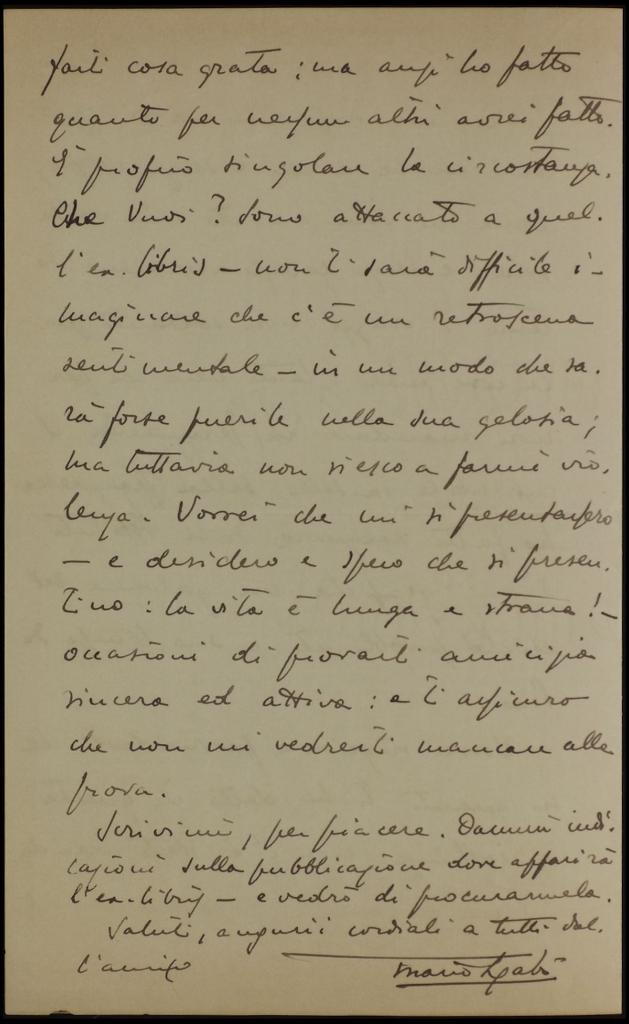 farti cosa grata; ma anzi ho fatto
quanto per nessun altri avrei fatto.
È proprio singolare la circostanza.
Che vuoi? Sono attaccato a quel-
l'ex-libris – non ti sarà difficile i-
maginare che c'è un retroscena
sentimentale – in un modo che sa-
rà forse puerile nella sua gelosia;
ma tuttavia non riesco a farmi vio-
lenza. Vorrei che mi si presentassero
– e desidero e spero che si presen-
tino: la vita è lunga e strana! –
occasioni di provarti amicizia
sincera ed attiva: e ti assicuro
che non mi vedresti mancare alla
prova.
Scrivimi, per piacere. Dammi indi-
cazioni sulla pubblicazione dove apparirà
l'ex-libris – e vedrò di procurarmela.
Saluti, augurii cordiali a tutti dal-
l'amico